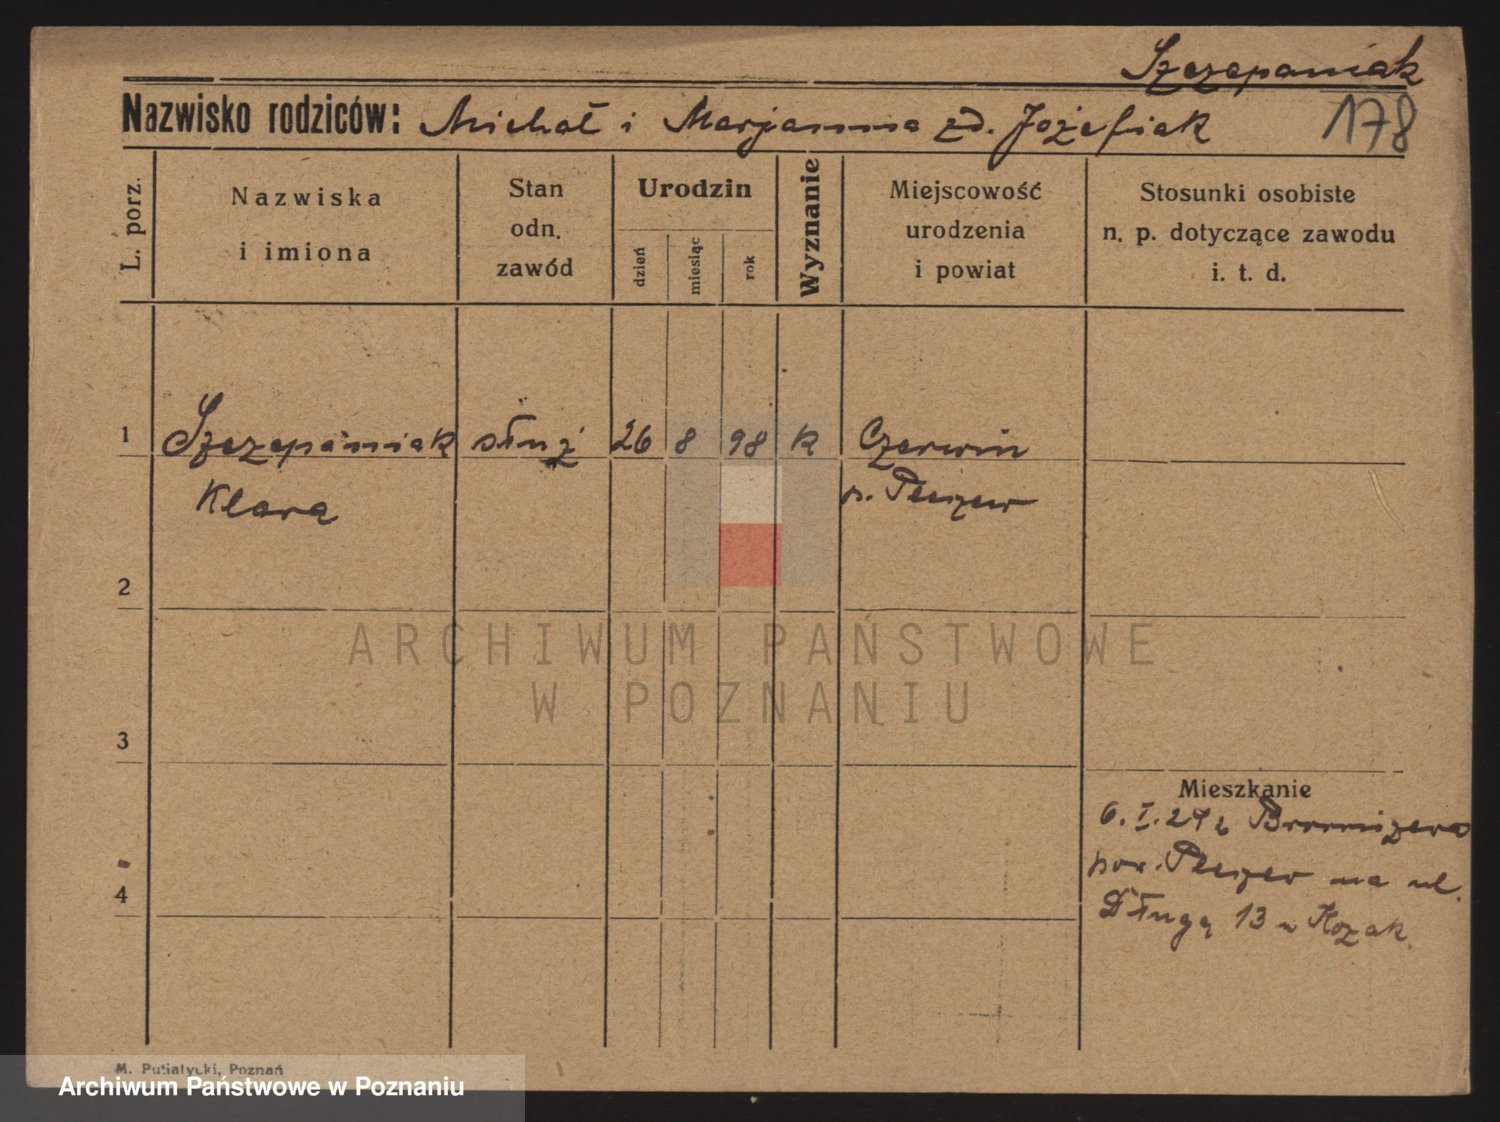 Szczepaniak
Nazwisko rodziców: Michał i Marjanna zd. Józefiak 178
L. porz.
Nazwiska
i imiona
Stan
odn.
zawód
Urodzin
dzień
miesiąc
rok
Wyznanie
Miejscowość
urodzenia
i powiat
Stosunki osobiste
n. p. dotyczące zawodu
i. t. d.
1 Szczepaniak służ 26 8 98 k Czerwin
Klara p. Pleszew
2
ARCHIWUM PAŃSTWOWE
W POZNANIU
3
Mieszkanie
6. I. 24 z
pow. Pleszew na ul.
4
Długą 13 u Kozak.
M. Putiatycki, Poznań
Archiwum Państwowe w Poznaniu